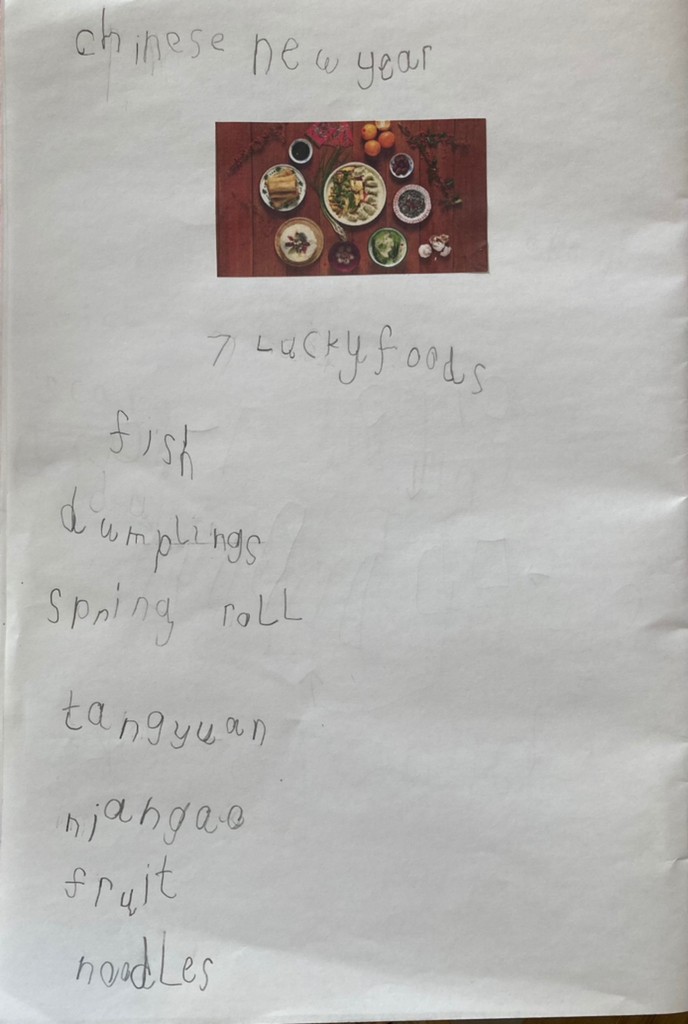 chinese new year
7 Lucky foods
fish
dumplings
spring roll
tangyuan
niangao
fruit
noodles